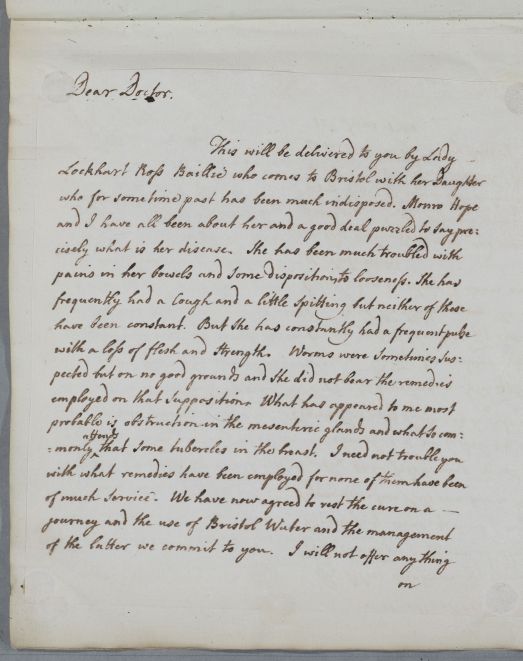 Dear Doctor.
This will be delivered to you by Lady
Lockhart Ross Baillie who comes to Bristol with her Daughter
who for sometime past has been much indisposed. Monro Hope
and I have all been about her and a good deal puzzled to say pre:
cisely what is her disease. She has been much troubled with
pains in her bowels and some disposition to looseness. She has
frequently had a Cough and a little Spitting but neither of these
have been constant. But She has constantly had a frequent pulse
with a loss of flesh and Strength. Worms were Sometimes Sus:
pected but on no good grounds and She did not bear the remedies
employed on that Supposition. What has appeared to me most
probable is obstruction in the mesenteric glands and what so com:
:monly attends that some tubercles in the breast. I need not trouble you
with what remedies have been employed for none of them have been
of much Service. We have now agreed to rest the cure on a —
journey and the use of Bristol Water and the management
of the latter we commit to you. I will not offer any thing
on